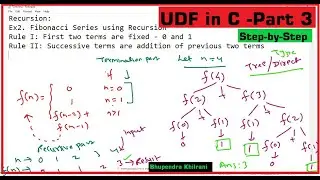 UDF in C -Part 3
Step-by-Step
Recursion:
Ex2. Fibonacci Series using Recursion
Rule I: First two terms are fixed - 0 and 1
Rule II: Successive terms are addition of previous two terms
Termination part
Let n=4
Type
Tree/Direct
f(n)=
0 n=0
1 n=1
f(n-1) n>1
+
f(n-2)
f(4)
f(3) f(2)
f(2) f(1) f(1) f(0)
f(1) f(0) 1 1 0
1 0
Ans: 3
Recursive part
Input
n → 0 1 2 3 4
3 → Result
Bhupendra Khilrani